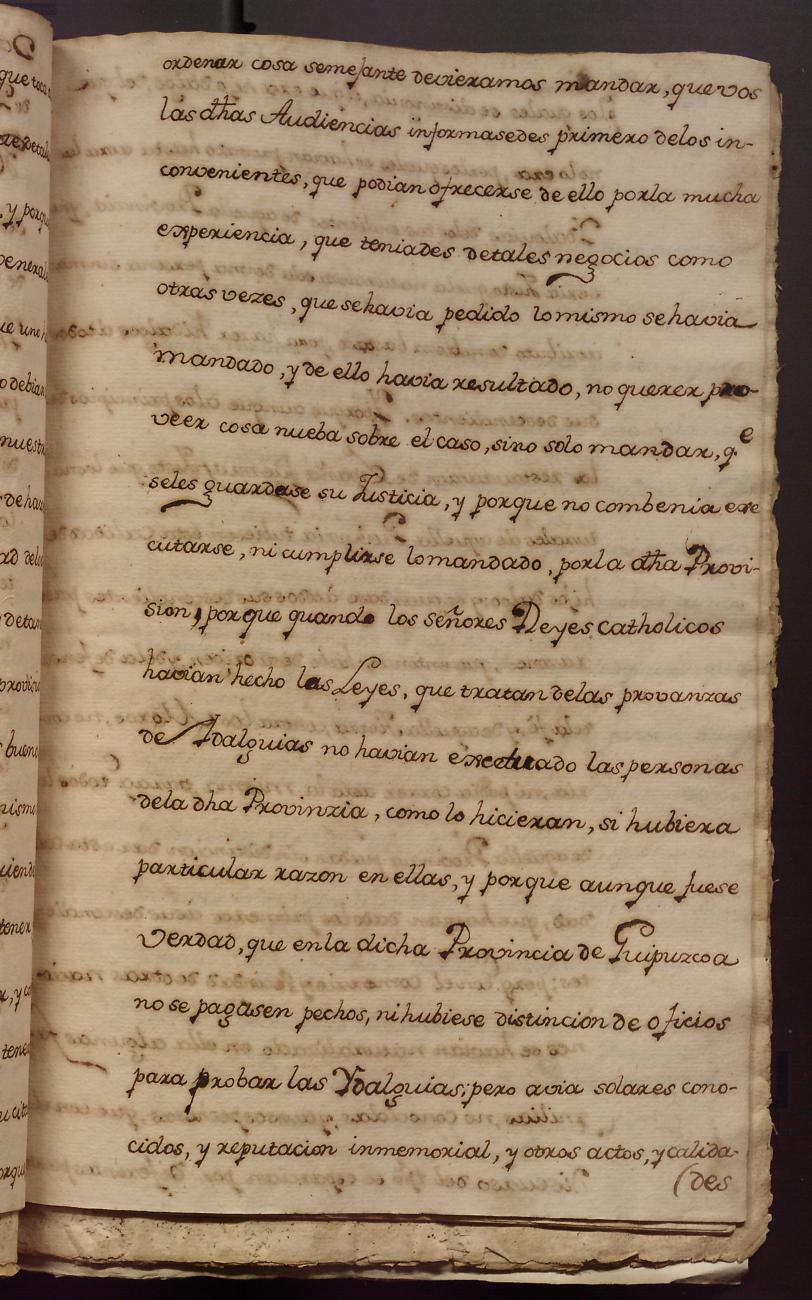 ordenar cosa semejante devieramos mandar, que vos
las dhas Audiencias informasedes primero delos in-
convenientes, que podian ofrecerse de ello porla mucha
experiencia, que teniades detales negocios como
otras vezes, que se havia pedido lo mismo se havia
mandado, y de ello havia resultado, no querer pro-
veer cosa nueba sobre el caso, sino solo mandar, qe
seles guardase su Justicia, y porque no combenia exe
cutarse, ni cumplirse lo mandado, porla dha Provi-
sion, porque quando los señores Reyes catholicos
havian hecho las Leyes, que tratan delas provanzas
de Ydalguias no havian exceptuado las personas
dela dha Provinzia, como lo hicieran, si hubiera
particular razon en ellas, y porque aunque fuese
verdad, que enla dicha Provincia de Guipuzcoa
no se pagasen pechos, ni hubiese distincion de oficios
para probar las Ydalguias; pero avia solares cono-
cidos, y reputacion inmemorial, y otros actos, y calida-
(des